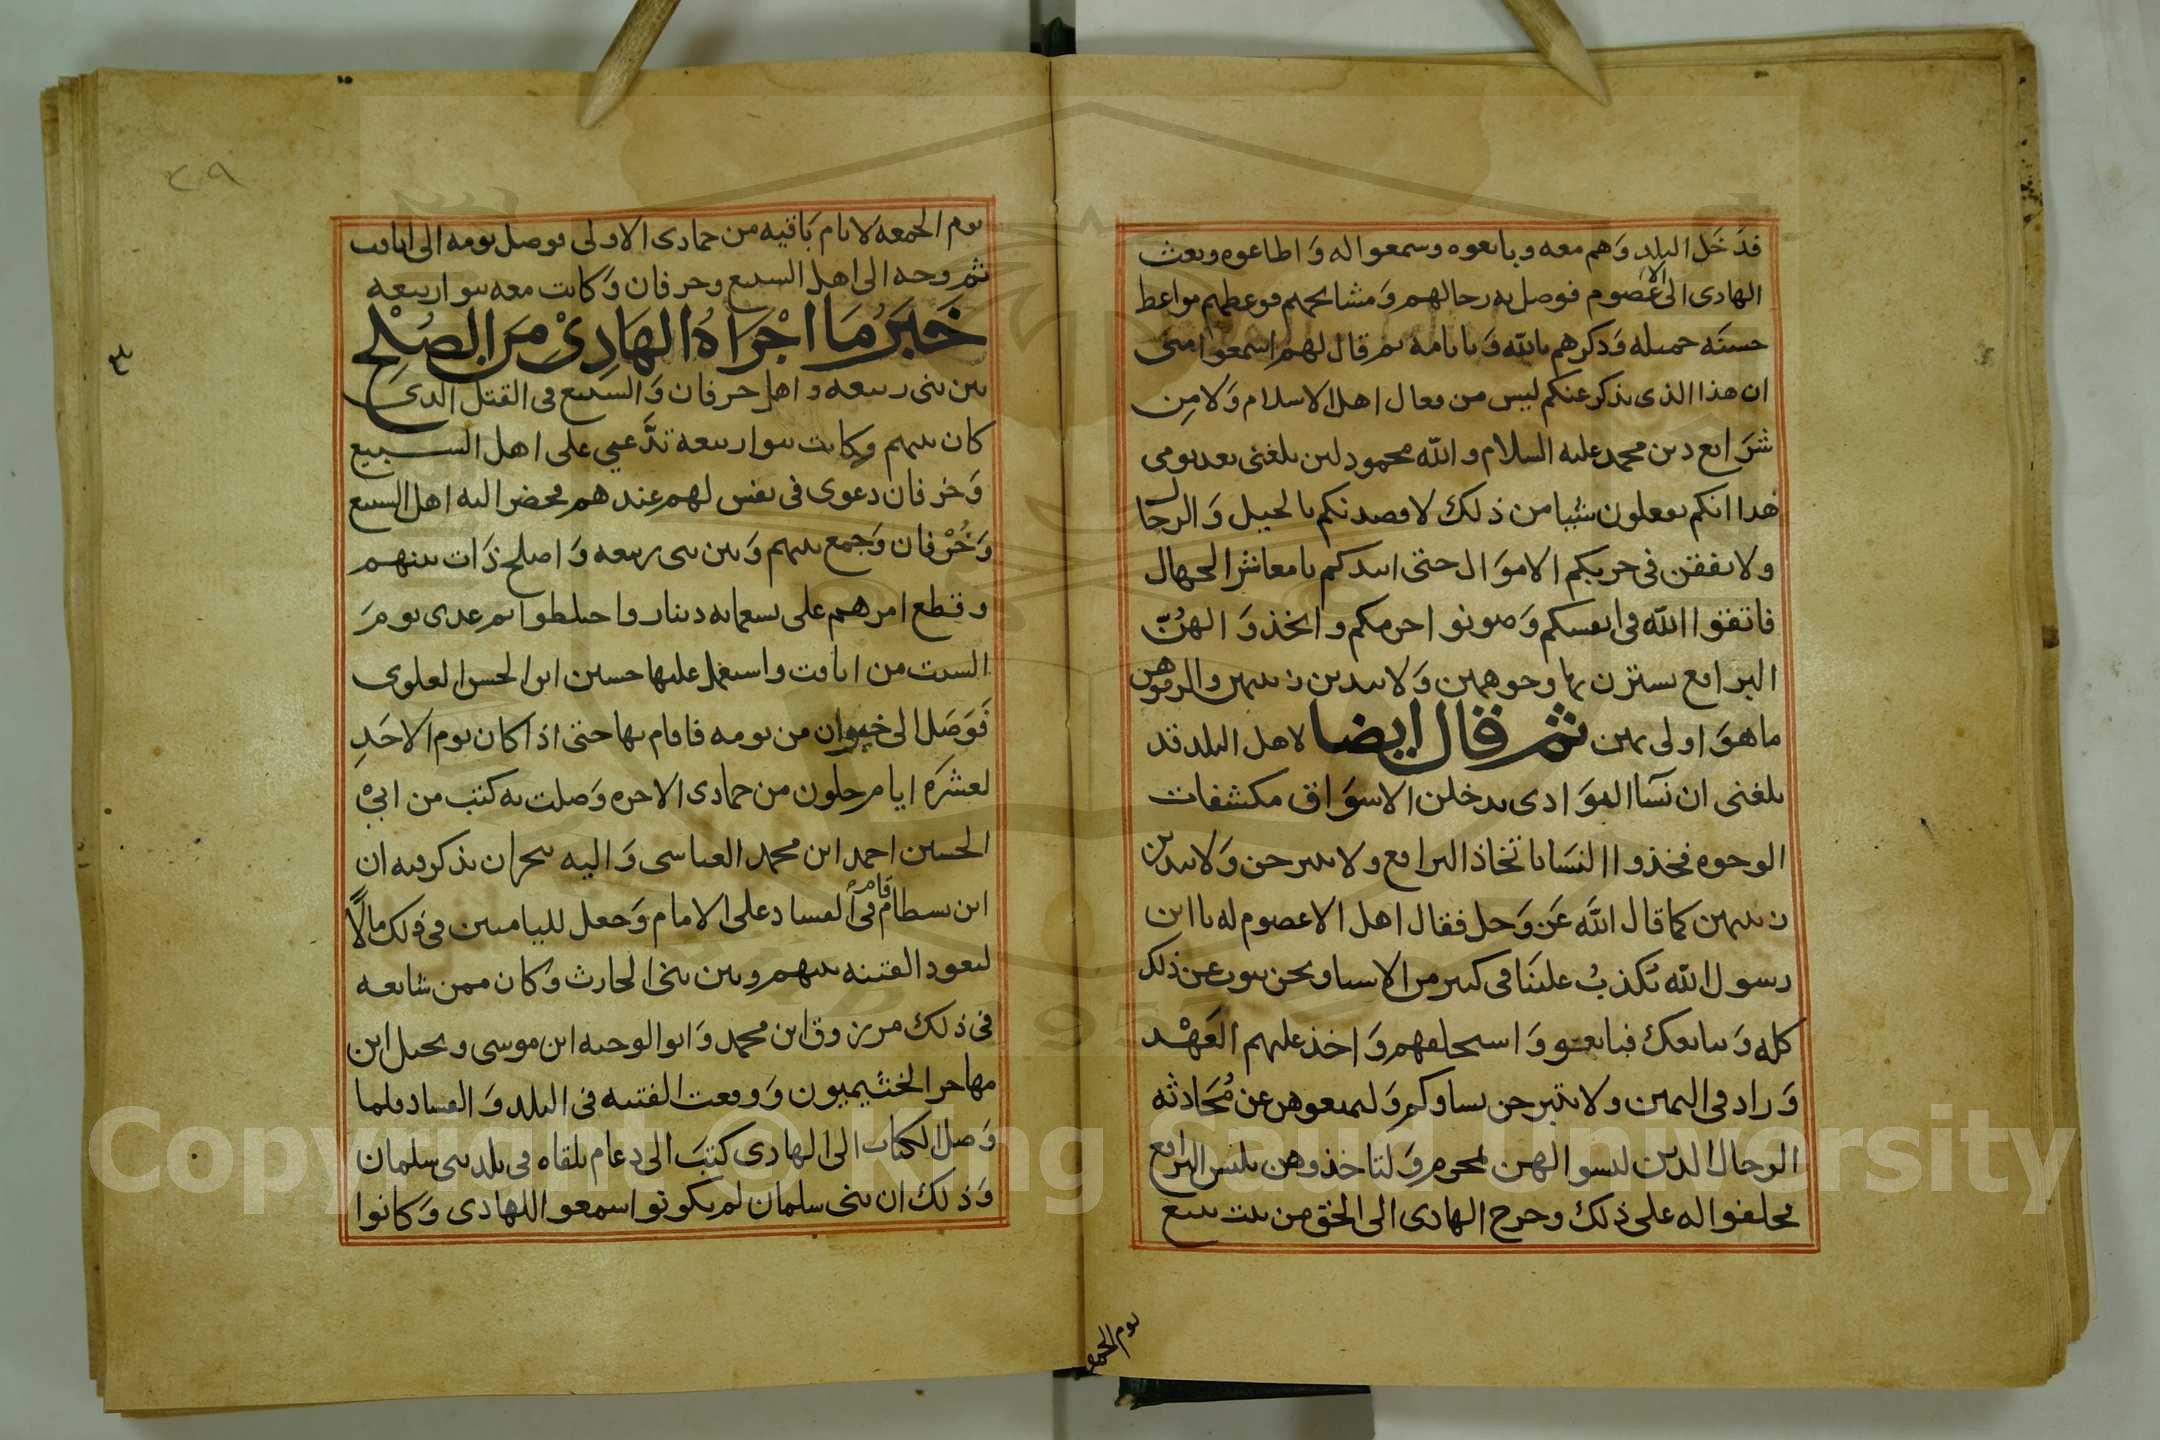 فدَخَل البلد وَهم معه وبايعوه وسمعوا له وَاطاعوه وبعث
الهادى الى الاعصوم فوصل به رجالهم وَمشايخهم فوعظهم مواعظ
حسنَه جميله وَذكرهم بالله وَباياامه ثم قال لهم اسمعوا منى
ان هذا الذى يذكر عنكم ليس من فعال اهل الاسلام وَلا مِن
شَرَايع دين محمد عليه السلام والله محمود لين بلغنى بعد يومى
هذا انكم تفعلون شيا من ذلك لاقصدنكم بالخيل وَالرجال
ولانفقن فى حربكم الاموَال حتى ابيدكم يا معاشر الجهال
فاتقوا الله فى انفسكم وَصونوا حرمكم واتخذوَا لهنّ
البراقع يستترن بها وجوههن وَلا يبدين زينتهن والزموهن
ما هوَ اولى بهن ثم قال ايضا لاهل البلد قد
بلغنى ان نسآ البوَادى يدخلن الاسوَاق مكشفات
الوجوه فخذوا النسَا باتخاذ البراقع ولا يتبرجن وَلا يبدين
زينتهن كما قال الله عَز وَجل فقال اهل الاعصوم له يا ابن
رسول الله تكذبُ علينَا فى كثير من الاشيا ونحن نتوب عن ذلك
كله وَنبايعك فبايعو وَاستحلفهم وَاخذ عليهم العَهْد
وَزاد فى اليمين ولا يتبرجن نساوكم وَليمنعوهن عن مُحَادثه
الرجال الذين ليسوا لهن بمحرم وَلتاخذوهن بلبس البراقع
فحلفوا له على ذلك وخرج الهادى الى الحق من بيت سبع
يوم الجمعه
٢٩
يوم الجمعه لايام بَاقيه من جمادى الاولى فوصل يومه الى اثافت
ثم وجه الى اهل السبيع وحرفان وَكانت معه بنوا ربيعه
خَبَرُ مَا اجْرَاهُ الهَادِىْ مِنَ الصُلْحِ
بين بنى ربيعه واهل حرفان وَالسبيع فى القتل الذى
كان بينهم وكانت بنوا ربيعه تدَّعى على اهل السبيع
وَحرفان دعوى فى نفس لهم عندهم فحضر اليه اهل السبيع
وَحُرْفان وَجمع بينهم وَبين بنى ربيعه وَاصلح ذَات بينهم
وقطع امرهم على تسعمايه دينار واختلطوا ثم غدى يومَ
السبت من اثافت واستعمل عليها حسين ابن الحسن العلوى
فَوَصَل الى خيوان من يومه فاقام بها حتى اذا كان يوم الاحَدِ
لعشرَه ايام خلون من جمادى الاخره وَصلت به كتب من ابىْ
الحسين احمد ابن محمد العباسى وَاليه بنجران يذكر فيه ان
ابن بسطام قَامَ فى الفساد على الامام وَجعل لليامين فى ذلك مالًا
لتعود الفتنه بينهم وبين بنى الحارث وَكان ممن شايعه
فى ذلك مرزوق ابن محمد وَابو الوجيه ابن موسى ونحيل ابن
مهاجر الخثيميون وَوقعت الفتنه فى البلد وَالفساد فلما
وَصل الكتاب الى الهادى كتبَ الى دعام يلقاه فى بلد بنى سلمان
وَذلك ان بنى سلمان لم يكونوا سمعوا للهادى وَكانوا
Copyright © King Saud University